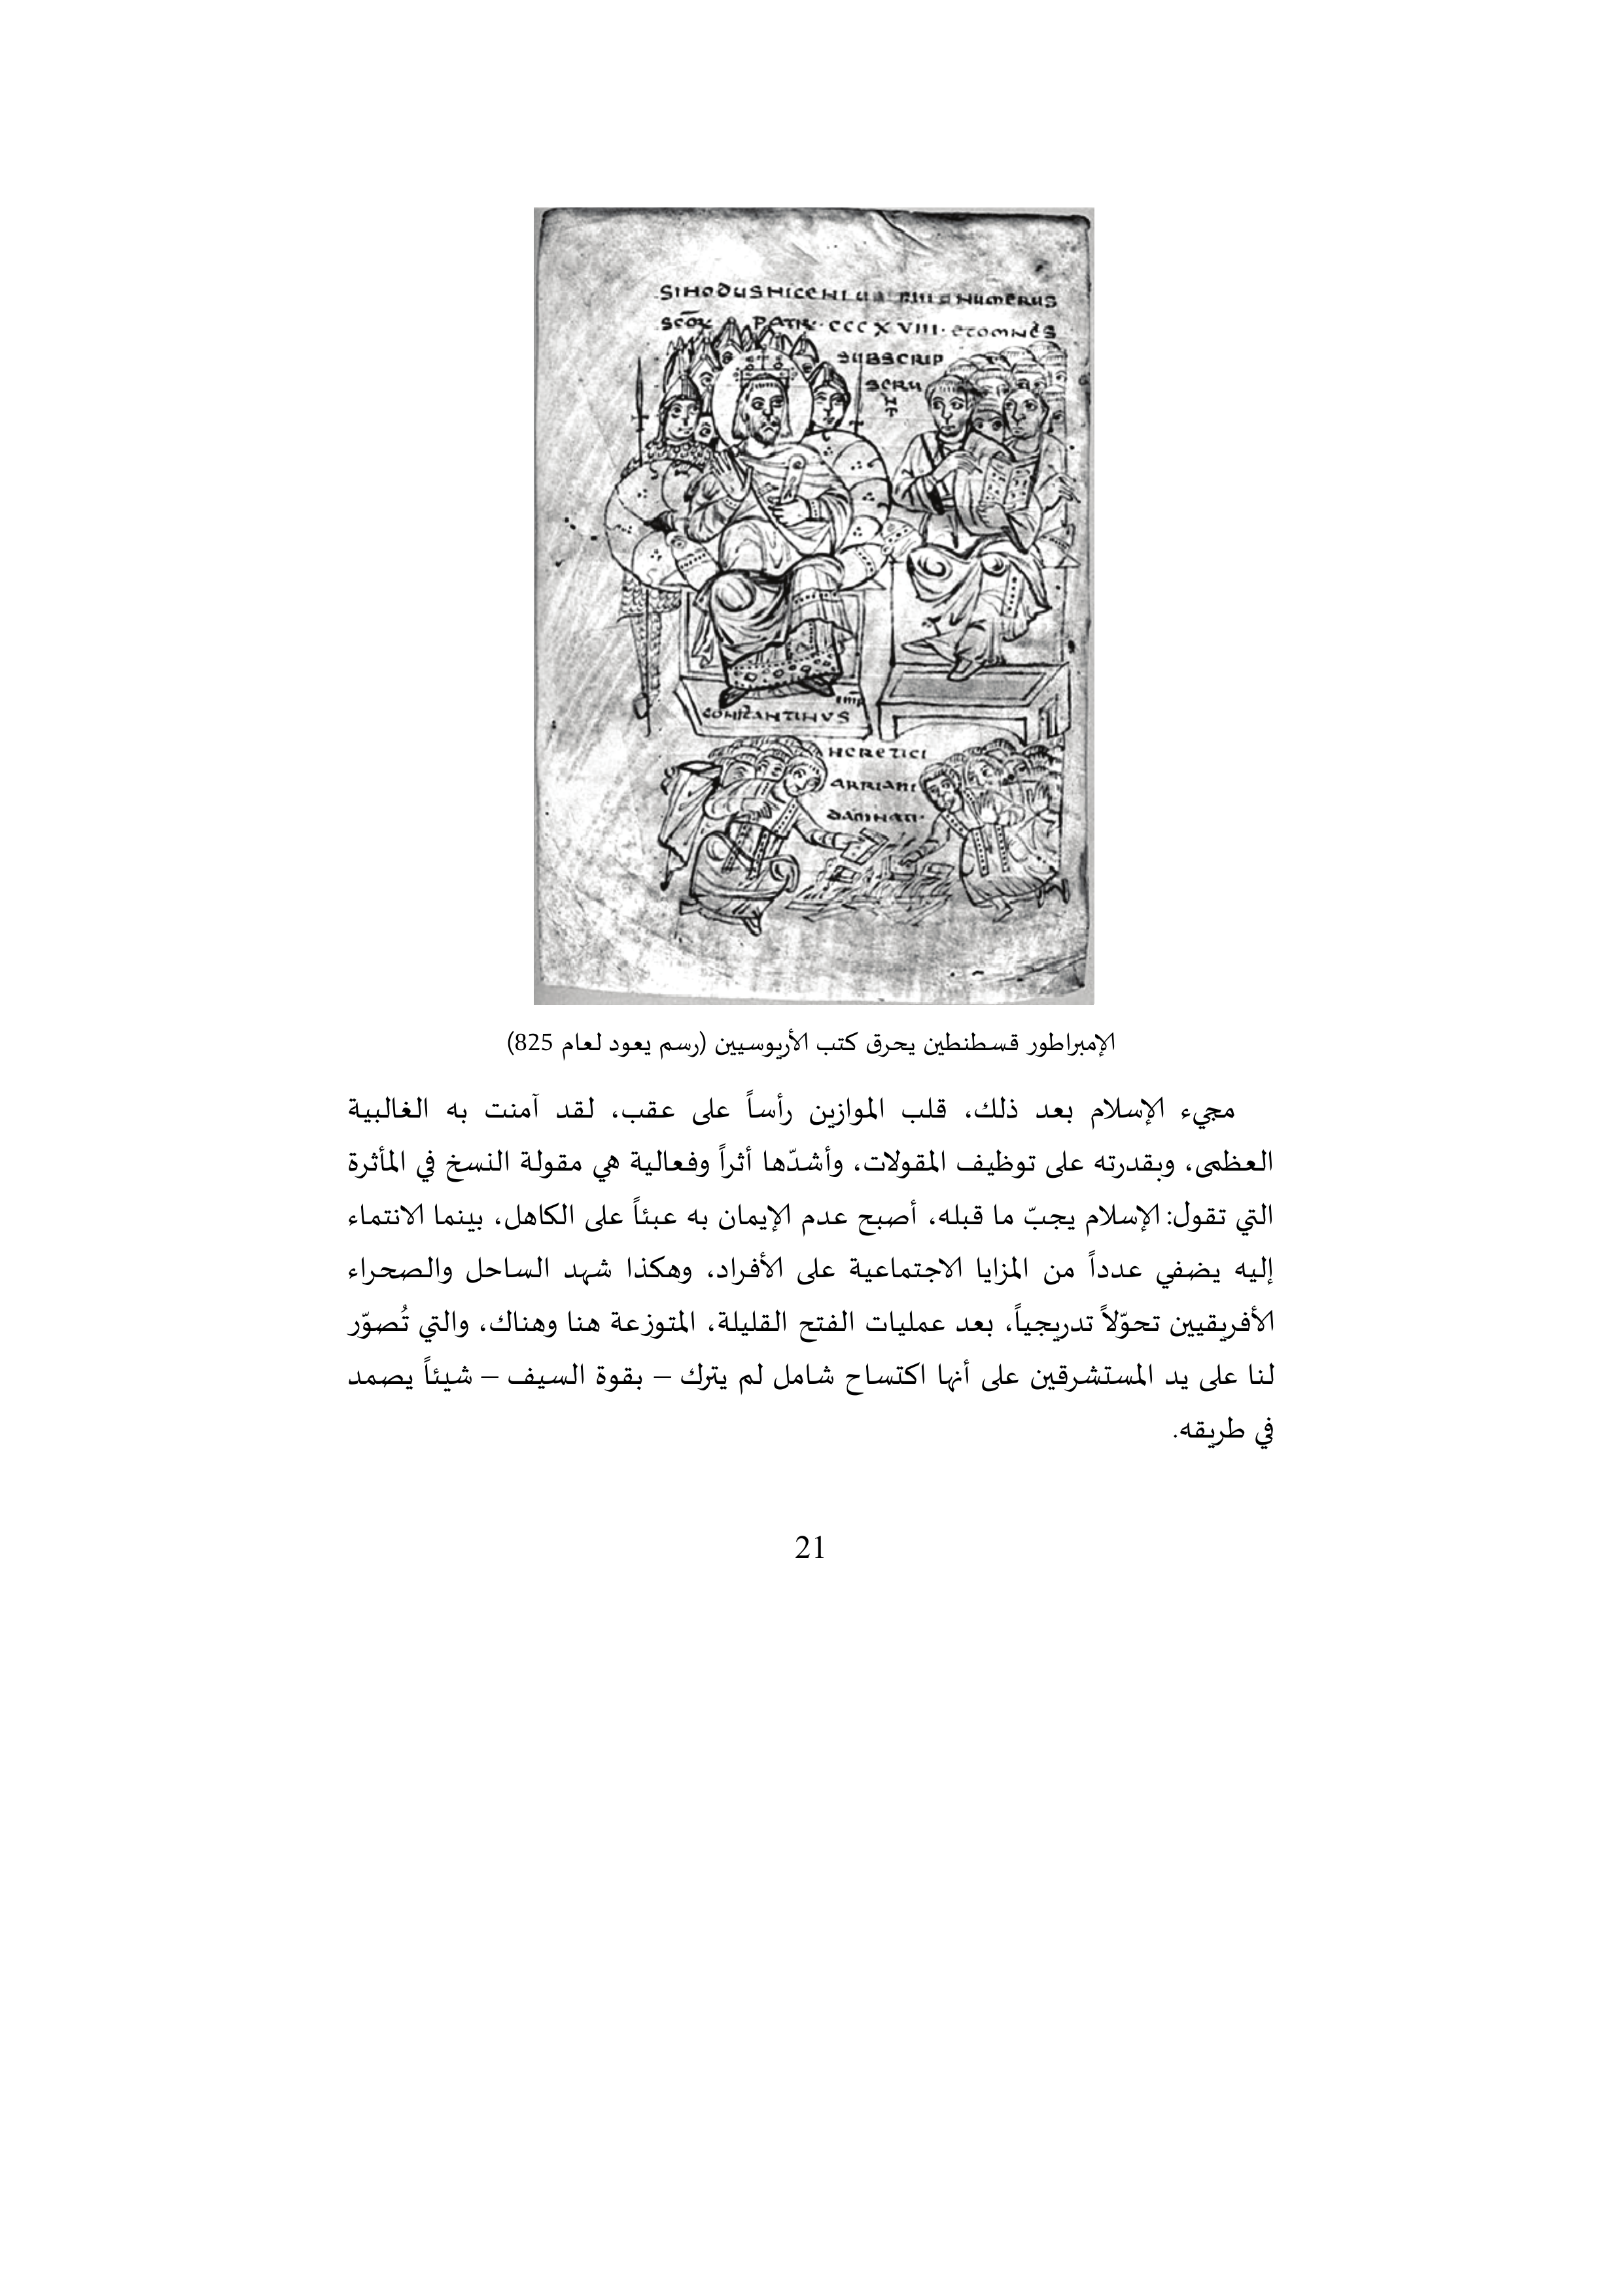 SINODUS NICENI NUMERUS
PATRV · CCC X VIII · ET OMNES
SUBSCRIP
SERU
NT
IMP
CONSTANTINUS
HERETICI
ARRIANI
DAMNATI ·
الإمبراطور قسطنطين يحرق كتب الأريوسيين (رسم يعود لعام 825)
مجيء الإسلام بعد ذلك، قلب الموازين رأساً على عقب، لقد آمنت به الغالبية
العظمى، وبقدرته على توظيف المقولات، وأشدّها أثراً وفعالية هي مقولة النسخ في المأثرة
التي تقول: الإسلام يجبّ ما قبله، أصبح عدم الإيمان به عبئاً على الكاهل، بينما الانتماء
إليه يضفي عدداً من المزايا الاجتماعية على الأفراد، وهكذا شهد الساحل والصحراء
الأفريقيين تحوّلاً تدريجياً، بعد عمليات الفتح القليلة، المتوزعة هنا وهناك، والتي تُصوّر
لنا على يد المستشرقين على أنها اكتساح شامل لم يترك – بقوة السيف – شيئاً يصمد
في طريقه.
21